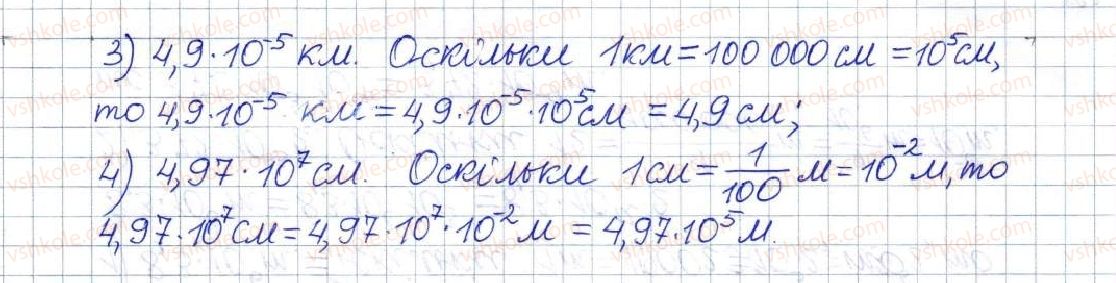 3) 4,9·10⁻⁵ км. Оскільки 1км=100 000см=10⁵см,
то 4,9·10⁻⁵ км=4,9·10⁻⁵·10⁵см=4,9см;
4) 4,97·10⁷см. Оскільки 1см=1/100 м=10⁻²м, то
4,97·10⁷см=4,97·10⁷·10⁻²м=4,97·10⁵м.